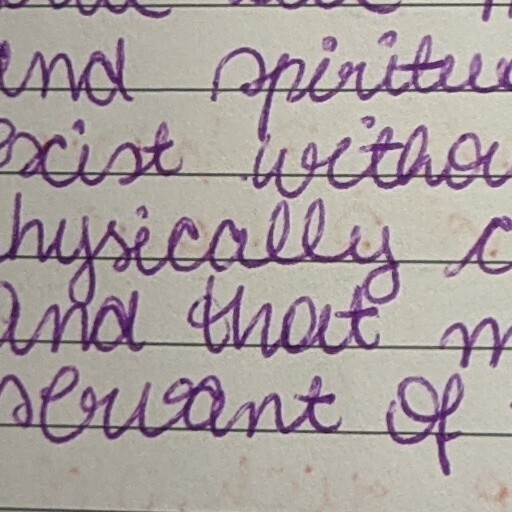 and spiritu
exist witho
hysically c
and that m
servant of